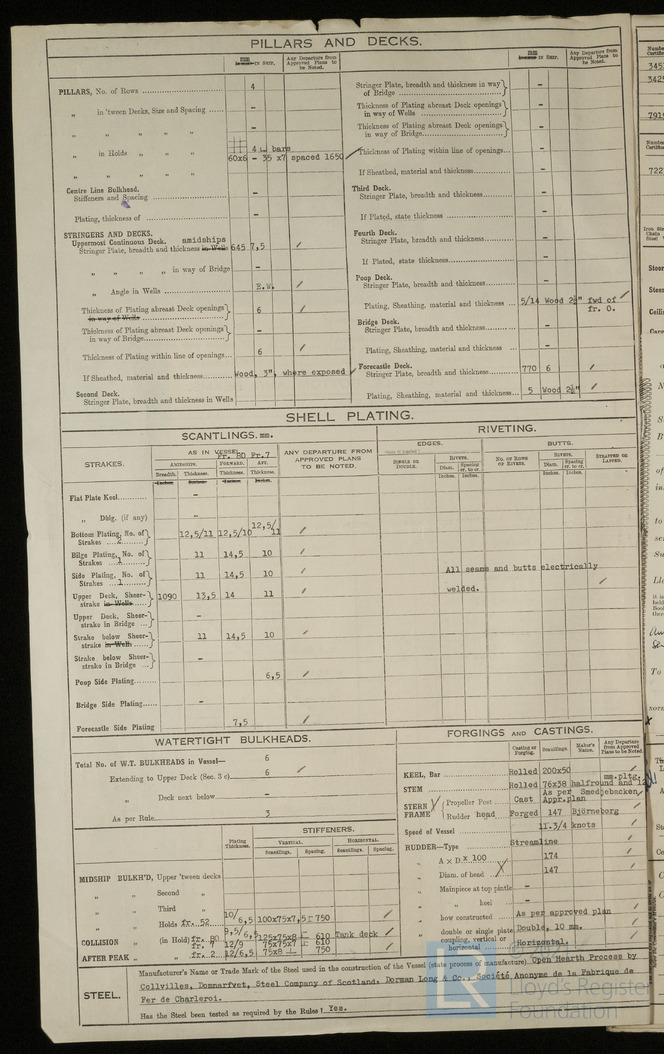 PILLARS AND DECKS.
IN SHIP. Any Departure from Approved Plans to be Noted.
PILLARS, No. of Rows 4
„ in 'tween Decks, Size and Spacing -
„ „ „ „ -
„ in Holds „ „ 4 bars
60x6 - 35 x7 spaced 1650
„ „ „ „
Centre Line Bulkhead.
Stiffeners and Spacing -
Plating, thickness of -
STRINGERS AND DECKS.
Uppermost Continuous Deck. amidships
Stringer Plate, breadth and thickness in Wells 645 7,5 /
„ „ „ „ in way of Bridge -
„ Angle in Wells E.W. /
Thickness of Plating abreast Deck openings in way of Wells 6 /
Thickness of Plating abreast Deck openings in way of Bridge -
Thickness of Plating within line of openings 6 /
If Sheathed, material and thickness Wood, 3", where exposed /
Second Deck.
Stringer Plate, breadth and thickness in Wells
IN SHIP. Any Departure from Approved Plans to be Noted.
Stringer Plate, breadth and thickness in way of Bridge -
Thickness of Plating abreast Deck openings in way of Wells -
Thickness of Plating abreast Deck openings in way of Bridge -
Thickness of Plating within line of openings -
If Sheathed, material and thickness -
Third Deck.
Stringer Plate, breadth and thickness -
If Plated, state thickness -
Fourth Deck.
Stringer Plate, breadth and thickness -
If Plated, state thickness -
Poop Deck.
Stringer Plate, breadth and thickness -
Plating, Sheathing, material and thickness 5/14 Wood 2½" fwd of fr. 0. /
Bridge Deck.
Stringer Plate, breadth and thickness -
Plating, Sheathing, material and thickness -
Forecastle Deck.
Stringer Plate, breadth and thickness 770 6 /
Plating, Sheathing, material and thickness 5 Wood 2½" /
SHELL PLATING.
SCANTLINGS. mm. RIVETING.
STRAKES. AS IN VESSEL. Fr. 80 Fr.7 ANY DEPARTURE FROM APPROVED PLANS TO BE NOTED. EDGES. BUTTS.
AMIDSHIPS. FORWARD. AFT. SINGLE OR DOUBLE. RIVETS. NO. OF ROWS OF RIVETS. RIVETS. STRAPPED OR LAPPED.
Breadth. Thickness. Thickness. Thickness. Diam. Spacing cr. to cr. Diam. Spacing cr. to cr.
Inches. Inches. Inches. Inches. Inches. Inches. Inches. Inches.
Flat Plate Keel -
„ Dblg. (if any) -
Bottom Plating, No. of Strakes 2 12,5/11 12,5/10 12,5/11 /
Bilge Plating, No. of Strakes 1 11 14,5 10 /
Side Plating, No. of Strakes 1 11 14,5 10 / All seams and butts electrically
Upper Deck, Sheerstrake in Wells 1090 13,5 14 11 / welded. /
Upper Deck, Sheerstrake in Bridge -
Strake below Sheerstrake in Well 11 14,5 10 /
Strake below Sheerstrake in Bridge -
Poop Side Plating 6,5 /
Bridge Side Plating -
Forecastle Side Plating 7,5 /
WATERTIGHT BULKHEADS.
Total No. of W.T. BULKHEADS in Vessel— 6
Extending to Upper Deck (Sec. 3 c) 6 /
„ Deck next below -
As per Rule 3
Plating Thickness. STIFFENERS.
VERTICAL. HORIZONTAL.
Scantlings. Spacing. Scantlings. Spacing.
MIDSHIP BULKH'D, Upper 'tween decks
„ „ Second „
„ „ Third „
„ „ Holds fr. 52 10/6,5 100x75x7,5 750 /
COLLISION „ (in Hold) fr. 80 9,5/6,5 125x75x8 610 Tank deck /
„ fr. 7 12/9 75x75x7 610
AFTER PEAK „ „ fr. 2 12/6,5 75x8 750 /
FORGINGS AND CASTINGS.
Casting or Forging. Scantlings. Maker's Name. Any Departure from Approved Plans to be Noted.
KEEL, Bar Rolled 200x50 mm.pltg. /
STEM Rolled 76x38 halfround and 12
STERN FRAME Propeller Post Cast As per Appr.plan Smedjebacken
Rudder head Forged 147 Björneborg
Speed of Vessel 11.3/4 knots
RUDDER—Type Streamline /
„ A x D x 100 174 /
„ Diam. of head 147 /
„ Mainpiece at top pintle -
„ „ heel -
„ how constructed As per approved plan
„ double or single plate Double, 10 mm. /
„ coupling, vertical or horizontal Horizontal. /
STEEL. Manufacturer's Name or Trade Mark of the Steel used in the construction of the Vessel (state process of manufacture) Open Hearth Process by
Collvilles, Domnarfvet, Steel Company of Scotland. Dorman Long & Co., Société Anonyme de la Fabrique de
Fer de Charleroi.
Has the Steel been tested as required by the Rules? Yes.
Lloyd's Register
Foundation